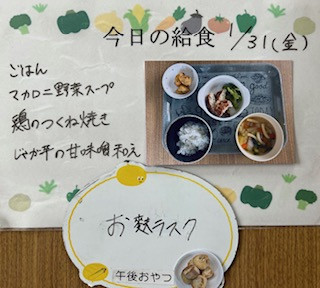 今日の給食 1/31(金)
ごはん
マカロニ野菜スープ
鶏のつくね焼き
じゃが芋の甘味噌和え
お麩ラスク
午後おやつ